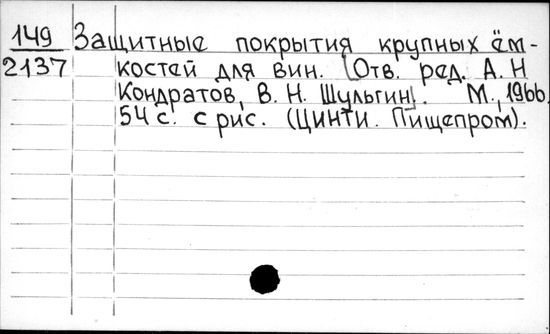 149 Защитные покрытия крупных ём-
2137 костей для вин. [Отв. ред. А. Н
Кондратов, В. Н. Шульгин]. М., 1966.
54 с. с рис. (ЦИНТИ. Пищепром).